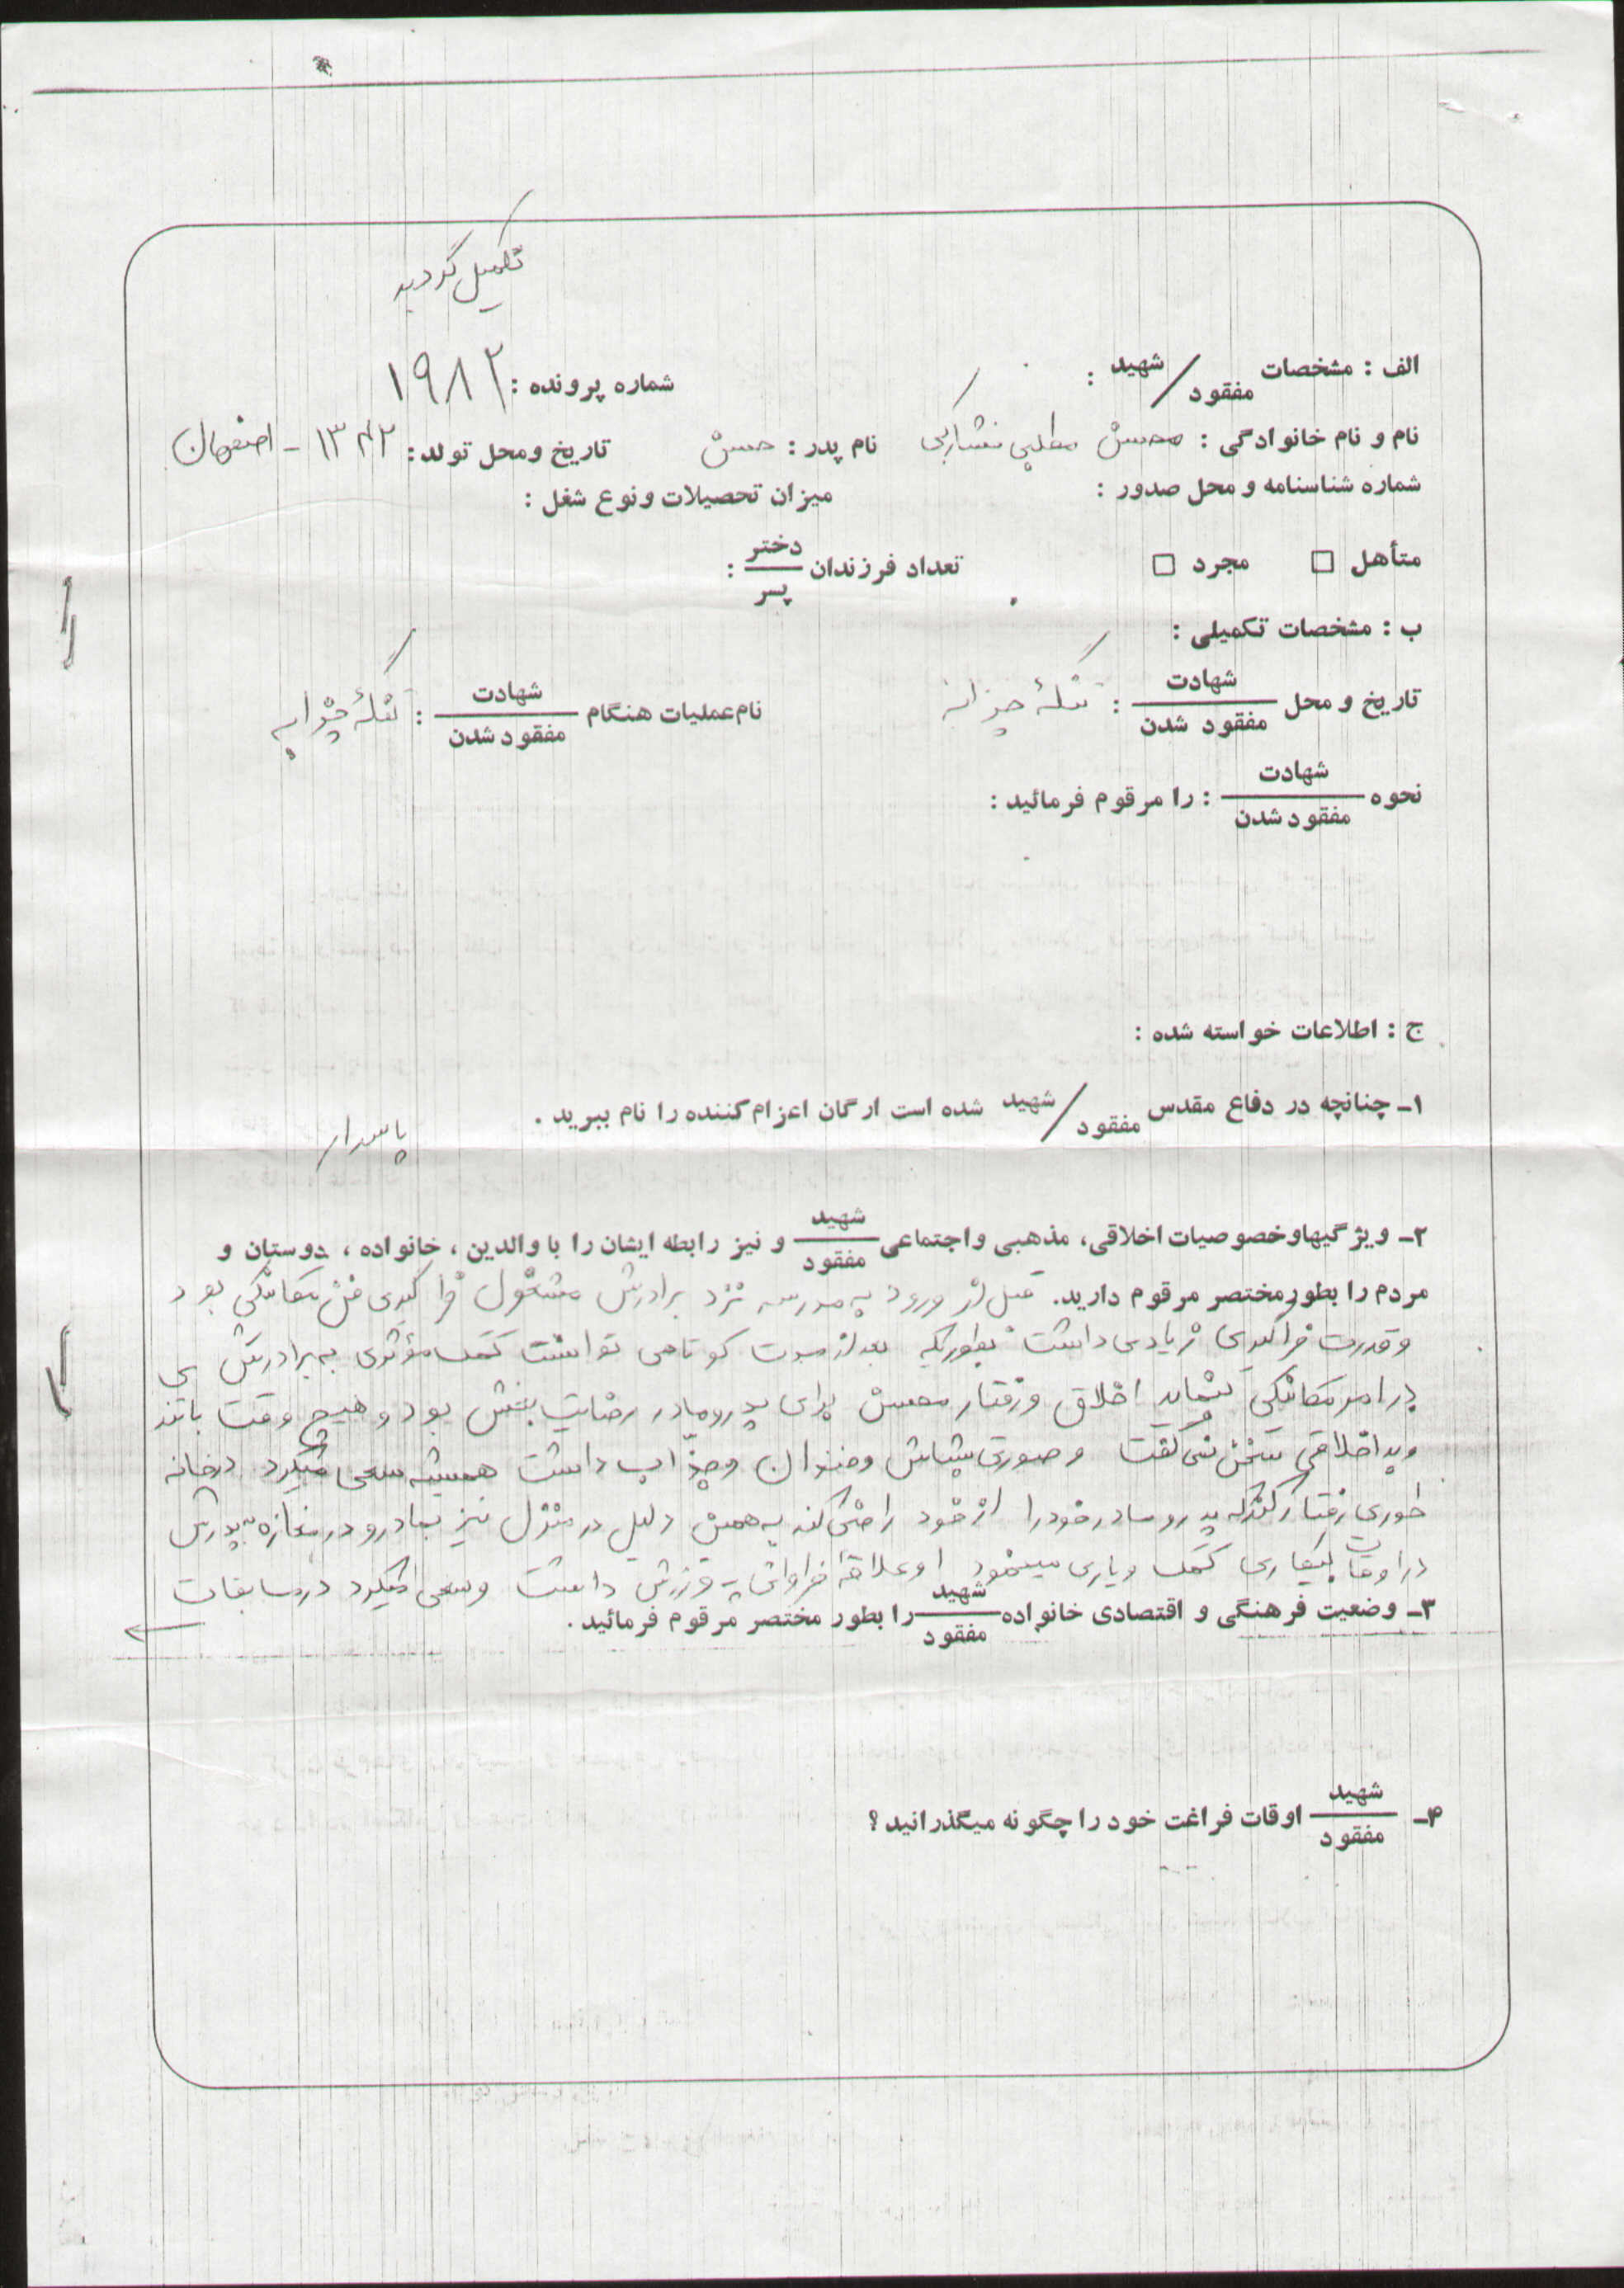 تکمیل گردید
الف : مشخصات شهید / مفقود :
شماره پرونده : ۱۹۸۲
نام و نام خانوادگی : محسن مطلبی نام پدر : حسن تاریخ ومحل تولد : ۱۳۴۲ - اصفهان
شماره شناسنامه و محل صدور : میزان تحصیلات ونوع شغل :
متأهل □ مجرد □ تعداد فرزندان دختر / پسر :
ب : مشخصات تکمیلی :
تاریخ و محل شهادت / مفقود شدن : تنگهٔ چزابه نام عملیات هنگام شهادت / مفقود شدن : تنگهٔ چزابه
نحوه شهادت / مفقود شدن : را مرقوم فرمائید :
ج : اطلاعات خواسته شده :
۱- چنانچه در دفاع مقدس شهید / مفقود شده است ارگان اعزام کننده را نام ببرید . پاسدار
۲- ویژگیهاوخصوصیات اخلاقی، مذهبی واجتماعی شهید / مفقود و نیز رابطه ایشان را با والدین ، خانواده ، دوستان و
مردم را بطور مختصر مرقوم دارید. قبل از ورود به مدرسه نزد برادرش مشغول فراگیری فن مکانیکی بود
و قدرت فراگیری زیادی داشت بطوریکه بعد از مدت کوتاهی توانست کمک مؤثری به برادرش
در امر مکانیکی بنماید اخلاق و رفتار محسن برای پدر و مادر رضایت بخش بود و هیچ وقت با تندی
و بد اخلاقی سخن نمی گفت و صورتی بشاش و خندان و جذاب داشت همیشه سعی میکرد در خانه
طوری رفتار کند که پدر و مادر خود را از خود راضی کند به همین دلیل در منزل نیز بمادر و در مغازه به پدرش
در اوقات بیکاری کمک و یاری مینمود او علاقهٔ فراوانی به ورزش داشت و سعی میکرد در مسابقات
۳- وضعیت فرهنگی و اقتصادی خانواده شهید / مفقود را بطور مختصر مرقوم فرمائید .
۴- شهید / مفقود اوقات فراغت خود را چگونه میگذرانید ؟